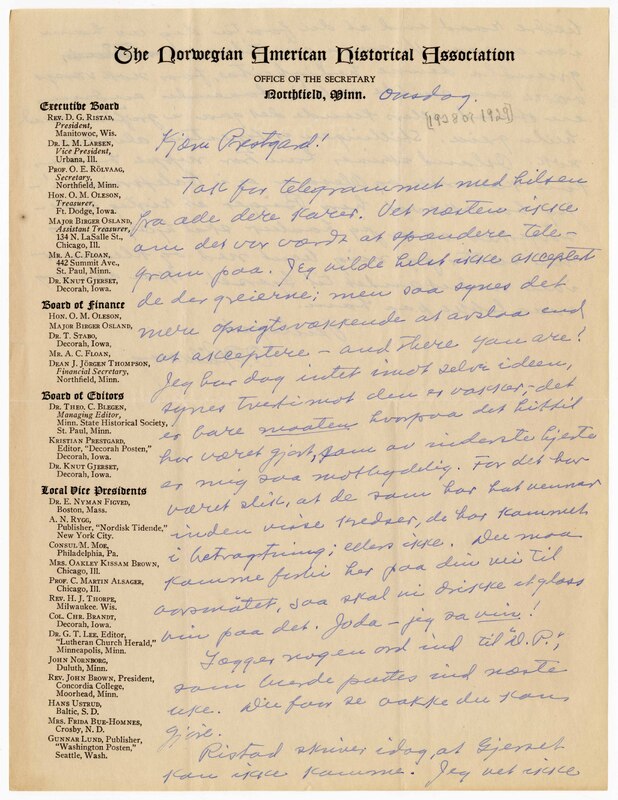 The Norwegian American Historical Association
OFFICE OF THE SECRETARY
Northfield, Minn. Onsdag.
[1928 or 1929]
Executive Board
REV. D. G. RISTAD,
President,
Manitowoc, Wis.
DR. L. M. LARSEN,
Vice President,
Urbana, Ill.
PROF. O. E. RÖLVAAG,
Secretary,
Northfield, Minn.
HON. O. M. OLESON,
Treasurer,
Ft. Dodge, Iowa.
MAJOR BIRGER OSLAND,
Assistant Treasurer,
134 N. LaSalle St.,
Chicago, Ill.
MR. A. C. FLOAN,
442 Summit Ave.,
St. Paul, Minn.
DR. KNUT GJERSET,
Decorah, Iowa.
Board of Finance
HON. O. M. OLESON,
MAJOR BIRGER OSLAND,
DR. T. STABO,
Decorah, Iowa.
MR. A. C. FLOAN,
DEAN J. JÖRGEN THOMPSON,
Financial Secretary,
Northfield, Minn.
Board of Editors
DR. THEO. C. BLEGEN,
Managing Editor,
Minn. State Historical Society,
St. Paul, Minn.
KRISTIAN PRESTGARD,
Editor, "Decorah Posten,"
Decorah, Iowa.
DR. KNUT GJERSET,
Decorah, Iowa.
Local Vice Presidents
DR. E. NYMAN FIGVED,
Boston, Mass.
A. N. RYGG,
Publisher, "Nordisk Tidende,"
New York City.
CONSUL M. MOE,
Philadelphia, Pa.
MRS. OAKLEY KISSAM BROWN,
Chicago, Ill.
PROF. C. MARTIN ALSAGER,
Chicago, Ill.
REV. H. J. THORPE,
Milwaukee. Wis.
COL. CHR. BRANDT,
Decorah, Iowa.
DR. G. T. LEE, Editor,
"Lutheran Church Herald,"
Minneapolis, Minn.
JOHN NORNBORG,
Duluth, Minn.
REV. JOHN BROWN, President,
Concordia College,
Moorhead, Minn.
HANS USTRUD,
Baltic, S. D.
MRS. FRIDA BUE-HOMNES,
Crosby, N. D.
GUNNAR LUND, Publisher,
"Washington Posten,"
Seattle, Wash.
Kjære Prestgard!
Tak for telegrammet med hilsen
fra alle dere karer. Vet næsten ikke
om det var værdt at spandere tele-
gram paa. Jeg vilde helst ikke akceptat
de der greierne; men saa synes det
mere opsigtsvækkende at avslaa end
at akceptere – and there you are!
Jeg har dog intet imot selve ideen,
synes tvertimot den er vakker; det
er bare maaten hvorpaa det hittil
har været gjort, som av inderste hjerte
er mig saa motbydelig. For det har
været slik, at de som har hat venner
inden visse kredser, de har kommet
i betragtning; ellers ikke. Du maa
komme forbi her paa din vei til
aarsmøtet, saa skal vi drikke et glass
vin paa det. Joda – jeg sa vin!
Lægger nogen ord ind til "D. P.",
som burde puttes ind næste
uke. Du faar se va kke du kan
gjøre.
Ristad skriver idag, at Gjerset
kan ikke komme. Jeg vet ikke